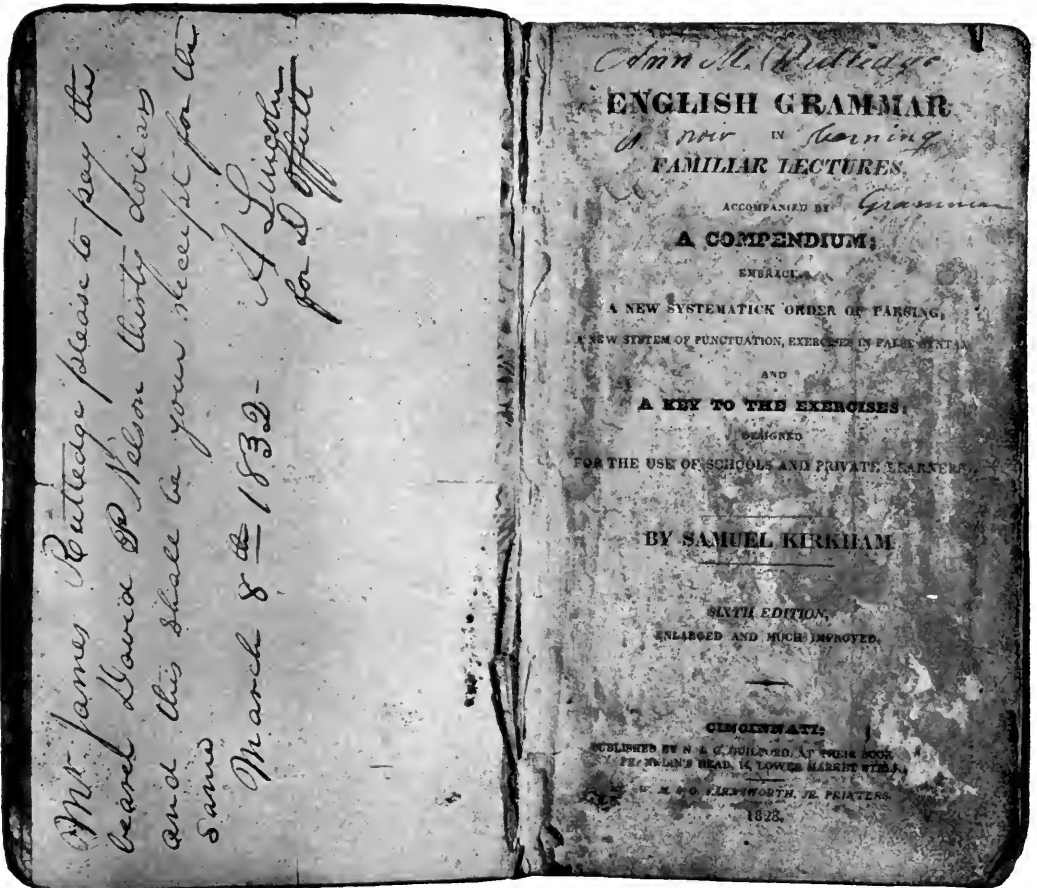 Mr James Rutledge please to pay the
bearer David P Nelson thirty dollars
and this shall be your receipt for the
same
March 8th 1832-
A Lincoln
for D Offutt
Ann M. Rutledge
ENGLISH GRAMMAR
is now IN learning
FAMILIAR LECTURES,
ACCOMPANIED BY Grammar
A COMPENDIUM;
EMBRACING
A NEW SYSTEMATICK ORDER OF PARSING,
A NEW SYSTEM OF PUNCTUATION, EXERCISES IN FALSE SYNTAX
AND
A KEY TO THE EXERCISES:
DESIGNED
FOR THE USE OF SCHOOLS AND PRIVATE LEARNERS.
BY SAMUEL KIRKHAM
SIXTH EDITION,
ENLARGED AND MUCH IMPROVED.
CINCINNATI:
PUBLISHED BY N. & G. GUILFORD, AT THEIR BOOK
FRANKLIN'S HEAD, 14, LOWER MARKET STREET,
W. M. & O. FARNSWORTH, JR. PRINTERS.
1828.